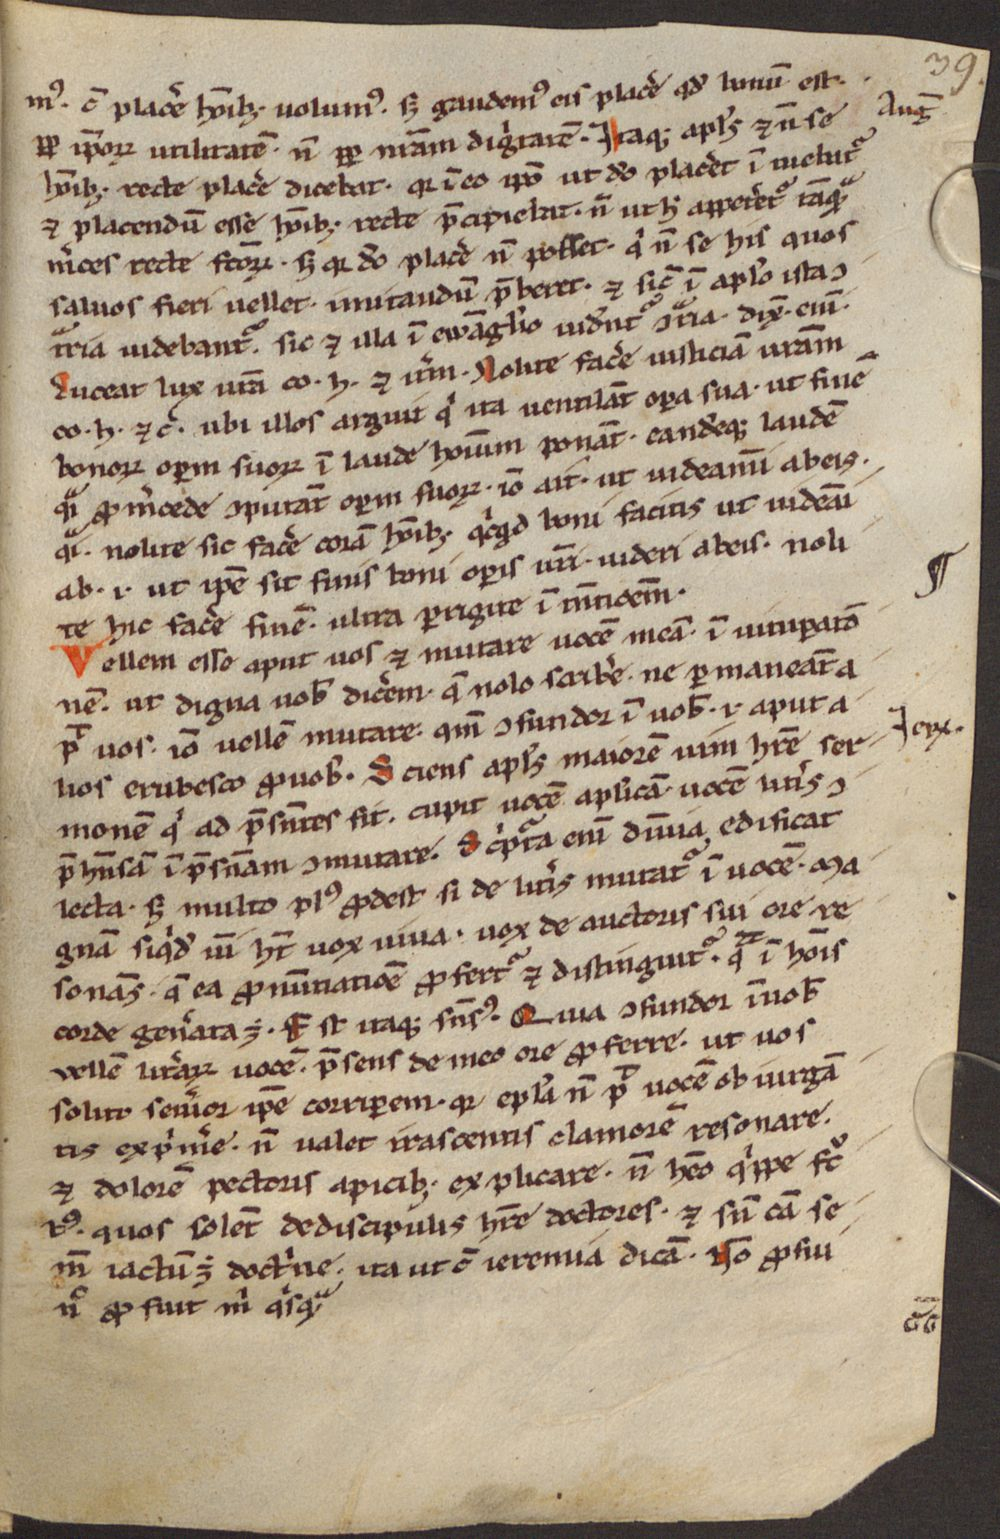 39
mꝰ. c̄ placẽ hoĩbꝫ uolumꝰ. sꝫ gaudemꝰ eis placẽ qđ bonũ est.
ꝓp̃ ip̃oꝝ utilitatẽ. ñ ꝓp̃ nr̃am dig̾tatẽ. Itaqꝫ apl̃s ⁊ ñ se Aug̃
hoĩbꝫ. recte placẽ dicebat. qꝛ ĩ eo ip̃o ut dõ placẽt ĩ tuebat᷑
⁊ placendũ esse hoĩbꝫ. recte p̃cipiebat. ñ ut h̃ appetẽt᷑ tãqͣ
m̃ces recte fcõꝝ. sꝫ qꝛ dõ placẽ ñ posset. qͥ ñ se his quos
saluos fieri uellet. imitandũ p̃beret. ⁊ sic̃ ĩ apl̃o ista ↄ
tͣria uidebant᷑. sic ⁊ illa ĩ ewãgl̃io uidẽnt᷑ ↄtͣria. dix̃. eñi.
Luceat lux ur̃a co. h. ⁊ it̾m. Nolite facẽ iusticiã ur̃am
co. h. ⁊ c̃. ubi illos arguit qͥ ita uentilãt oꝑa sua. ut finẽ
bonoꝝ oꝑm suoꝝ ĩ laude hoĩum ponãt. eandẽqꝫ laudẽ
qͣi ꝓ m̃cede ↄputãt oꝑm suoꝝ. iõ ait. ut uideamĩ ab eis.
qͣi. nolite sic facẽ corã hoĩbꝫ. qͥcqͥd boni facitis ut uideãi
ab. i. ut ip̃e sit finis boni oꝑis ur̃i. uideri ab eis. noli
te hic facẽ finẽ. ultra ꝑrigite ĩ tñtioẽm. ¶
Vellem esse aput uos ⁊ mutare uocẽ meã. ĩ uituꝑatõ
nẽ. ut digna uob̃ dicẽm. q̃ nolo scribẽ. ne ꝑmaneãt a
pᵈ uos. iõ uellẽ mutare. qm̃ ↄfundor ĩ uob̃. i. aput a
lios erubesco ꝓ uob̃. Sciens apl̃s maiorẽ uim hr̃e ser Ierx.
monẽ qͥ ad p̃sñtes fit. cupit uocẽ aplicã. uocẽ litt̾is ↄ
p̃hñsã ĩ p̃sñam ↄmutare. Scͥptͣa eñi diuĩa edificat
lecta. sꝫ multo plꝰ ꝓdest si de litt̾is mutat᷑ ĩ uocẽ. Ma
gnã siqͥđ uĩ ht̃ uox uiua. uox de auctoris sui ore re
sonãs. q̃ ea ꝓnũtiatioẽ ꝓfert᷑ ⁊ distinguit᷑. qͣ ĩ hoĩs
corde gen̾ata ẽ. Est itaqꝫ sñsꝰ. Quia ↄfundor ĩ uob̃
uellẽ litt̾aꝝ uocẽ. p̃sens de meo ore ꝓferre. ut uos
solito seu̾ior ip̃e corriꝑem. qꝛ epl̃a ñ pᵈ uocẽ obiurgã
tis expͥm̾e. ñ ualet irascentis clamorẽ resonare.
⁊ dolorẽ pectoris apicibꝫ explicare. ñ hẽo qͥppe fcͦ
tꝰ. quos solẽt de discipulis hr̃e doctores. ⁊ sñ cã se
m̃ iactũ ẽ doctͥne. ita ut c̃ ieremia dicã. Nõ ꝓfui
nͦ ꝓfuit m̃ qͥsqͣ